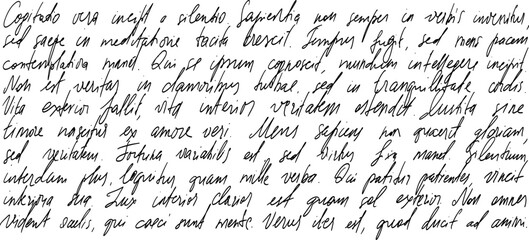 Cogitado vera incipit a silentio, Sapientia non semper in verbis invenitur,
sed saepe in meditatione tacita crescit. Tempus fugit, sed mens pacem
contemplativa manet. Qui se ipsum cognoscit, mundum intellegere incipit.
Non est veritas in clamoribus turbae, sed in tranquilitate cordis.
Vita exterior fallit, vita interior veritatem ostendit. Iustitia sine
timore nascitur ex amore veri. Mens sapiens non quaerit gloriam,
sed veritatem. Fortuna variabilis est, sed virtus manet. Silentium,
interdum plus, loquitur quam mille verba. Qui patitur patienter, vincit
iniuria sua. Lux interior clarior est quam sol exterior. Non omnes
vident oculis, qui caeci sunt mente. Verus iter est, quod ducit ad animi,